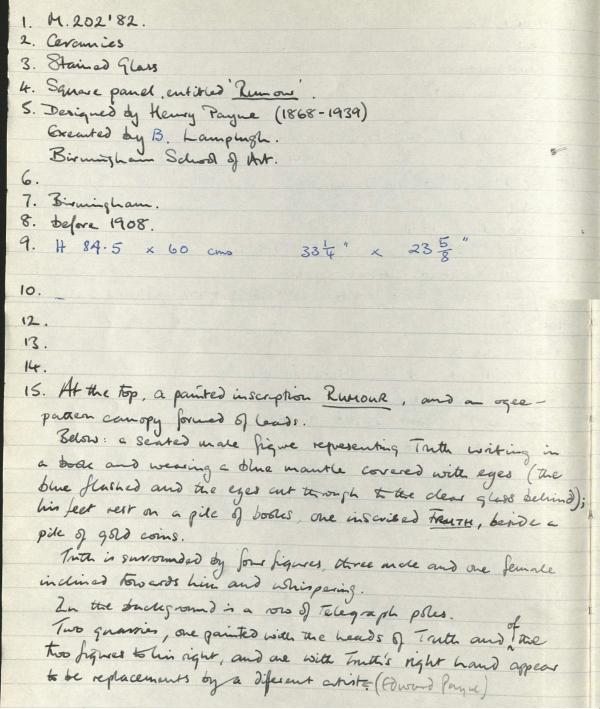 1. M.202'82.
2. Ceramics
3. Stained Glass
4. Square panel, entitled 'Rumour'.
5. Designed by Henry Payne (1868-1939)
Executed by B. Lamplugh.
Birmingham School of Art.
6.
7. Birmingham.
8. before 1908.
9. H 84.5 x 60 cms 33 1/4" x 23 5/8"
10. –
12.
13.
14.
15. At the top, a painted inscription RUMOUR, and an ogee-
pattern canopy formed of leads.
Below: a seated male figure representing Truth writing in
a book and wearing a blue mantle covered with eyes (the
blue flashed and the eyes cut through to the clear glass behind);
his feet rest on a pile of books, one inscribed TRUTH, beside a
pile of gold coins.
Truth is surrounded by four figures, three male and one female
inclined towards him and whispering.
In the background is a row of Telegraph poles.
Two quarries, one painted with the heads of Truth and of the
two figures to his right, and one with Truth's right hand appear
to be replacements by a different artist. (Edward Payne)